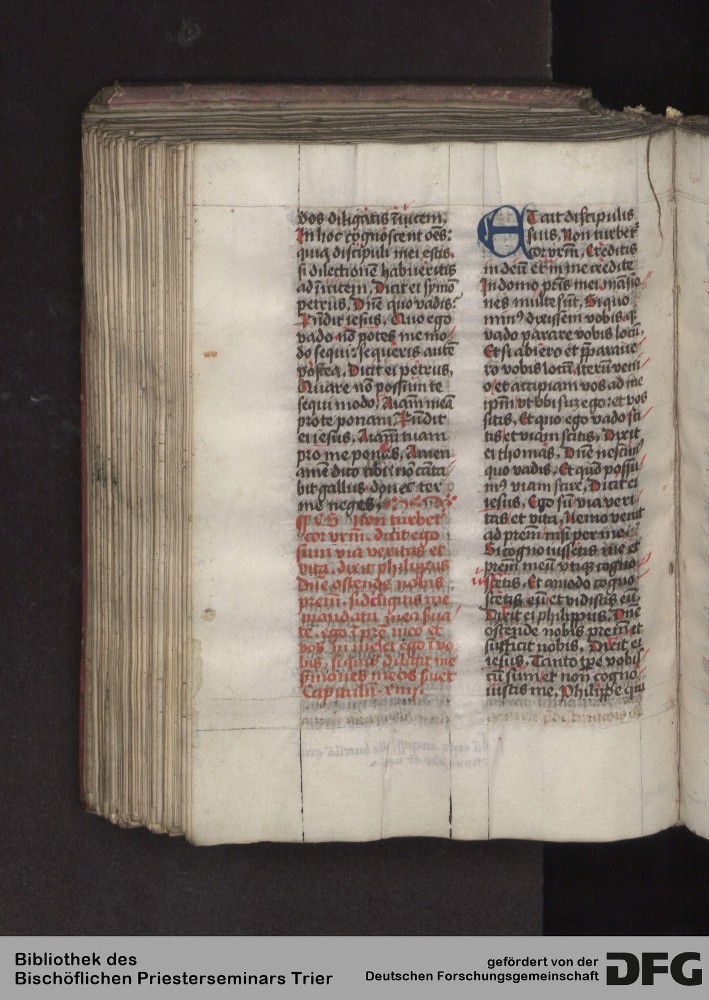 vos diligatis īuicem.
In hoc cognoscent oēs:
quia discipuli mei estis.
si dilectionē habueritis
ad īuicem. Dicit ei symō
petrus. Dn̄e quo vadis:
Rn̄dit iesus. Quo ego
vado nō potes me mo
do sequi: sequeris autē
postea. Dicit ei petrus.
Quare nō possum te
sequi modo. Aīam meā
pro te ponam. Rn̄dit
ei iesus. Aīam tuam
pro me pones. Amen
amē dico tibi: nō cāta
bit gallus donec ter
me neges.
Non turbet
cor vrm̄. dicit ego
sum via veritas et
vita. dixit philippus
dn̄e ostende nobis
prem̄. si diligitis me
mandata mea ẜua
te. ego ī pr̄e meo et
vos in me et ego ī vo
bis. si quis diligit me
sermones meos ẜuet
Capitulū xiiij
ET ait discipulis
suis. Non turbet᷑
cor vrm̄. Creditis
in deū et in me credite
In domo pr̄is mei māsio
nes multe sūt. Si quo
minꝰ dixissem vobis q̄
vado parare vobis locū.
Et si abiero et p̄paraue
ro vobis locū. iterū veni
o et accipiam vos ad me
ipm̄ vt vbi suꝫ ego: et vos
sitis. Et quo ego vado sci
tis et viam scitis. Dixit
ei thomas. Dn̄e nescimꝰ
quo vadis. Et quō possu
mꝰ viam scire. Dicit ei
iesus. Ego sū via veri
tas et vita. Nemo venit
ad prem̄ nisi per me.
Si cognouissetis me et
prem̄ meū vtiqꝫ cogno
uissetis. Et amodo cogno
scetis eū et vidistis eū.
Dixit ei philippus. Dn̄e
ostende nobis prem̄ et
sufficit nobis. Dixit ei
iesus. Tanto tp̄e vobis
cū sum et non cogno
uistis me. Philippe qui
Bibliothek des
Bischöflichen Priesterseminars Trier
gefördert von der
Deutschen Forschungsgemeinschaft
DFG